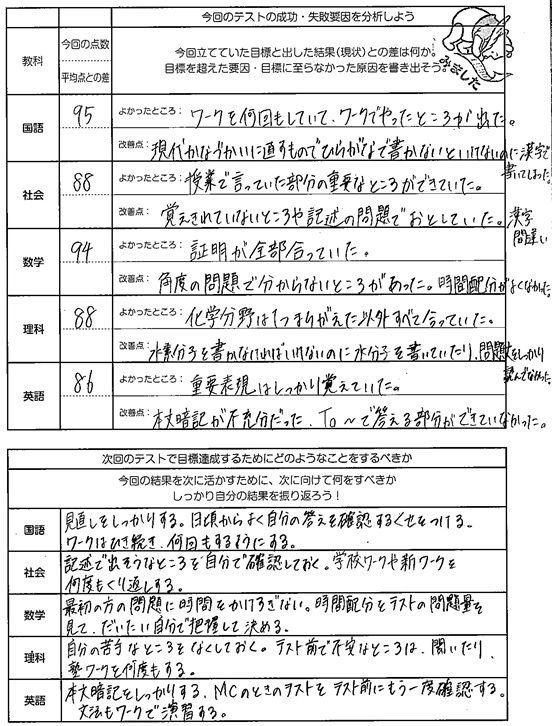 今回のテストの成功・失敗要因を分析しよう
教科
今回の点数
平均点との差
今回立てていた目標と出した結果(現状)との差は何か。
目標を超えた要因・目標に至らなかった原因を書き出そう。
みました
国語
95
よかったところ: ワークを何回もしていて、ワークでやったところが出た。
改善点: 現代かなづかいに直すものでひらがなで書かないといけないのに漢字で
書いてしまった。
社会
88
よかったところ: 授業で言っていた部分の重要なところができていた。
改善点: 覚えきれていないところや記述の問題でおとしていた。漢字
間違い
数学
94
よかったところ: 証明が全部合っていた。
改善点: 角度の問題で分からないところがあった。時間配分がよくなかった。
理科
88
よかったところ: 化学分野は1つまちがえた以外すべて合っていた。
改善点: 水素分子を書かなければいけないのに水分子を書いていたり、問題文をしっかり
読んでなかった。
英語
86
よかったところ: 重要表現はしっかり覚えていた。
改善点: 本文暗記が不充分だった、To ~で答える部分ができていなかった。
次回のテストで目標達成するためにどのようなことをするべきか
今回の結果を次に活かすために、次に向けて何をすべきか
しっかり自分の結果を振り返ろう!
国語
見直しをしっかりする。日頃からよく自分の答えを確認するくせをつける。
ワークはひき続き、何回もするようにする。
社会
記述で出そうなところを自分で確認しておく。学校ワークや新ワークを
何度もくり返しする。
数学
最初の方の問題に時間をかけすぎない。時間配分をテストの問題量を
見て、だいたい自分で把握して決める。
理科
自分の苦手なところをなくしておく。テスト前で不安なところは、聞いたり、
塾ワークを何度もする。
英語
本文暗記をしっかりする、MCのときのテストをテスト前にもう一度確認する。
文法もワークで演習する。